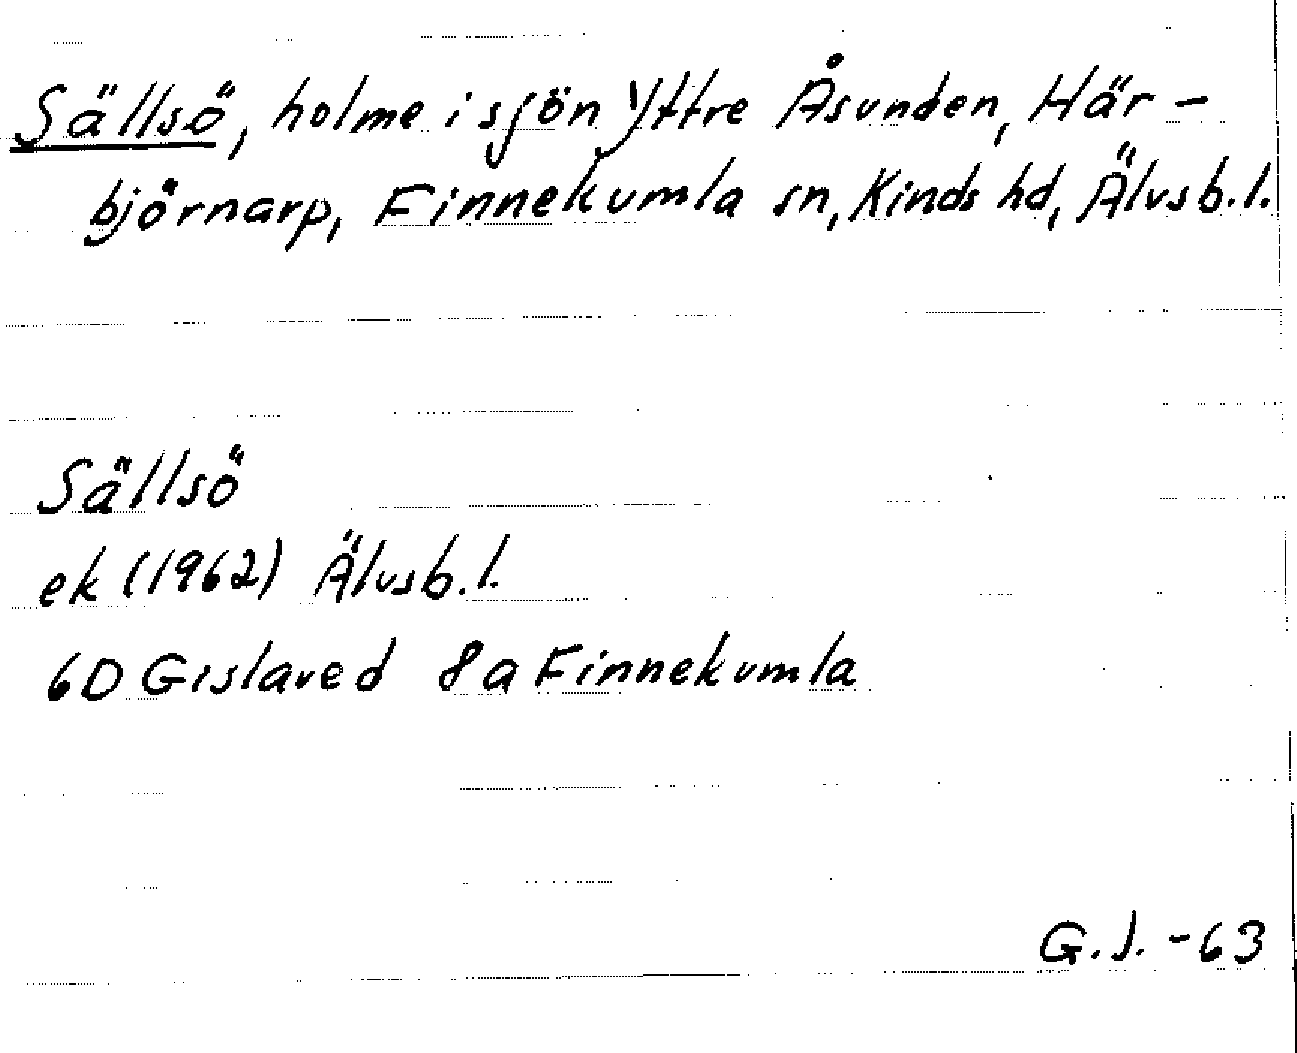 Sällsö, holme i sjön Yttre Åsunden, Här-
björnarp, Finnekumla sn, Kinds hd, Älvsb. l.
Sällsö
ek (1962) Älvsb. l.
6D Gislaved 8a Finnekumla
G.J. -63